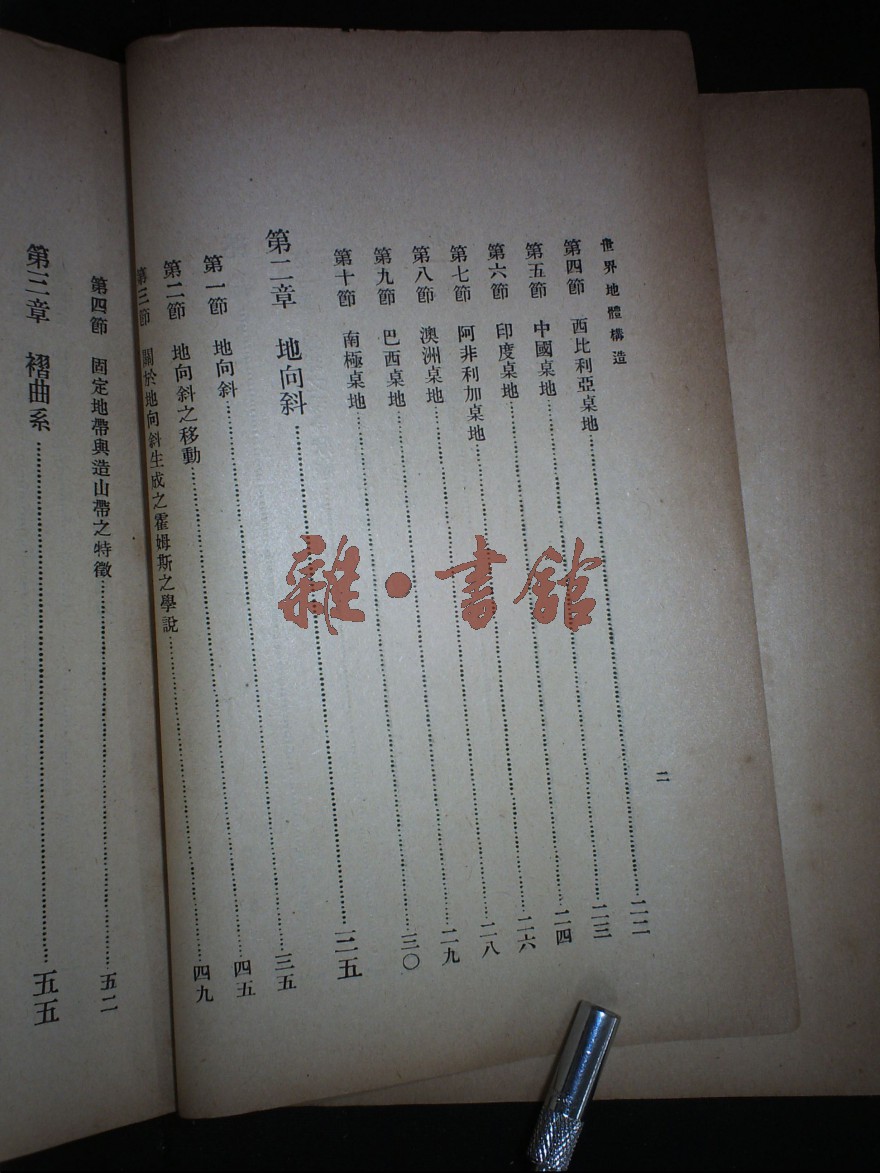 世界地體構造
二
第四節　西比利亞桌地……二二
第五節　中國桌地……二三
第六節　印度桌地……二四
第七節　阿非利加桌地……二六
第八節　澳洲桌地……二八
第九節　巴西桌地……二九
第十節　南極桌地……三〇
第二章　地向斜……三五
第一節　地向斜……三五
第二節　地向斜之移動……四五
第三節　關於地向斜生成之霍姆斯之學說……四九
第四節　固定地帶與造山帶之特徵……五二
第三章　褶曲系……五五
雜·書館